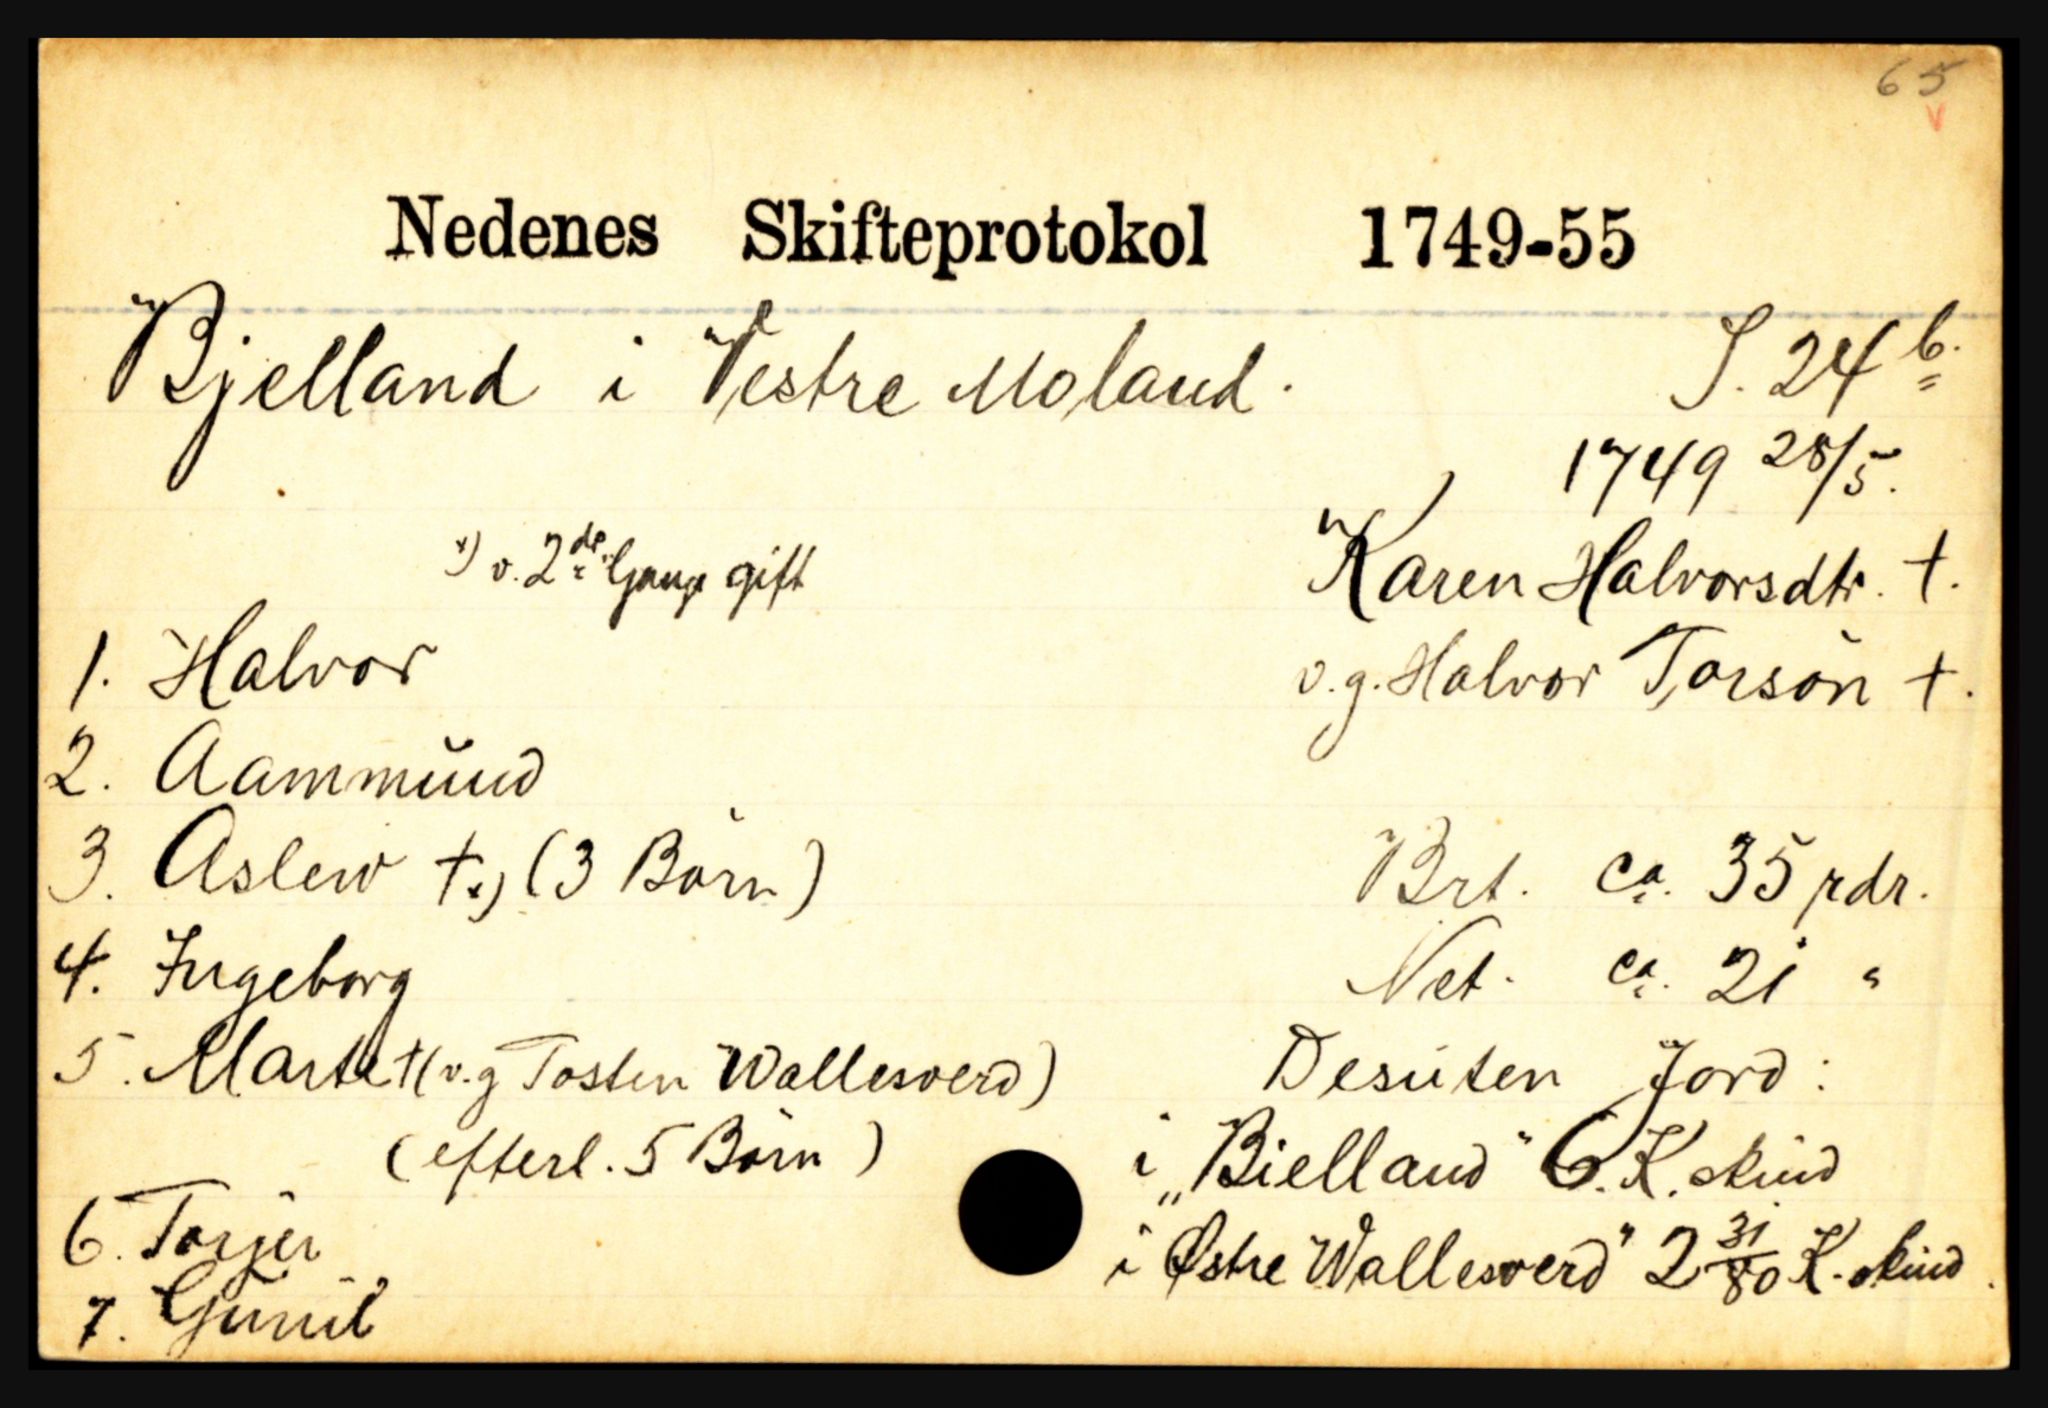 65
Nedenes Skifteprotokol 1749-55
Bjelland i Vestre Moland.
S. 24 b.
1749 28/5.
x) v. 2de Gang gift
Karen Halvorsdtr. †.
v.g. Halvor Torsön †.
1. Halvor
2. Aammund
3. Aslew † x) (3 Börn)
4. Ingeborg
5. Marte † (v.g Tosten Wallesverd)
(efterl. 5 Börn)
6. Torjer
7. Gunil
Brt. ca. 35 rdr.
Net. ca. 21 "
Desuten Jord:
i „Bielland" 6. K. skind
i Østre Wallesverd" 2 31/80 K. skind.